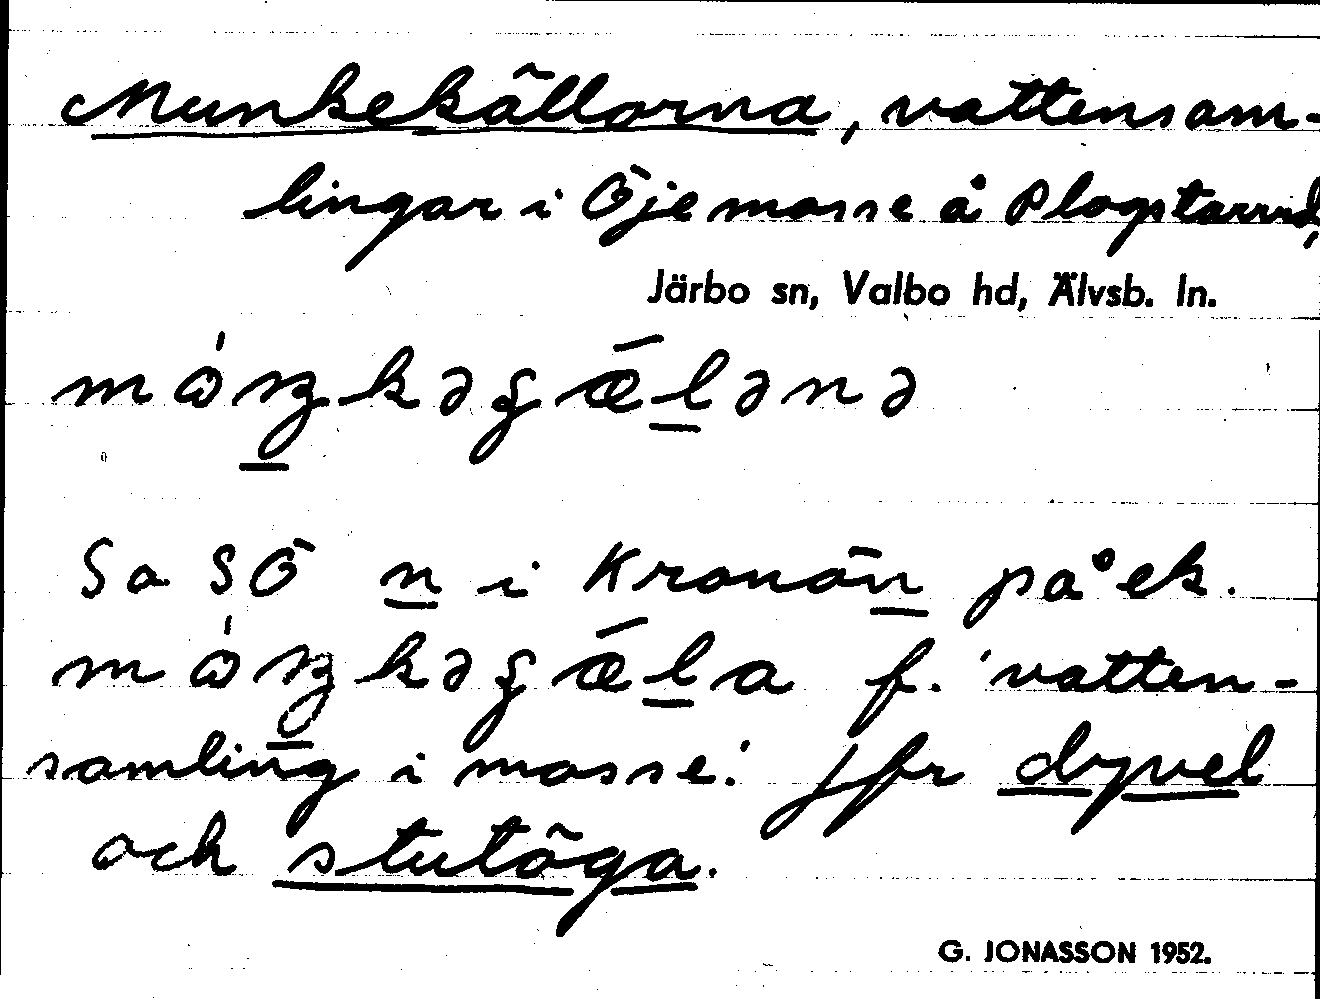 Munkekällorna, vattensam-
lingar i Öjemosse å Plogstarrud,
Järbo sn, Valbo hd, Älvsb. ln.
Sa SÖ n i Kronan på ek.
f. 'vatten-
samling i mosse'. Jfr dyvel
och stutöga.
G. JONASSON 1952.